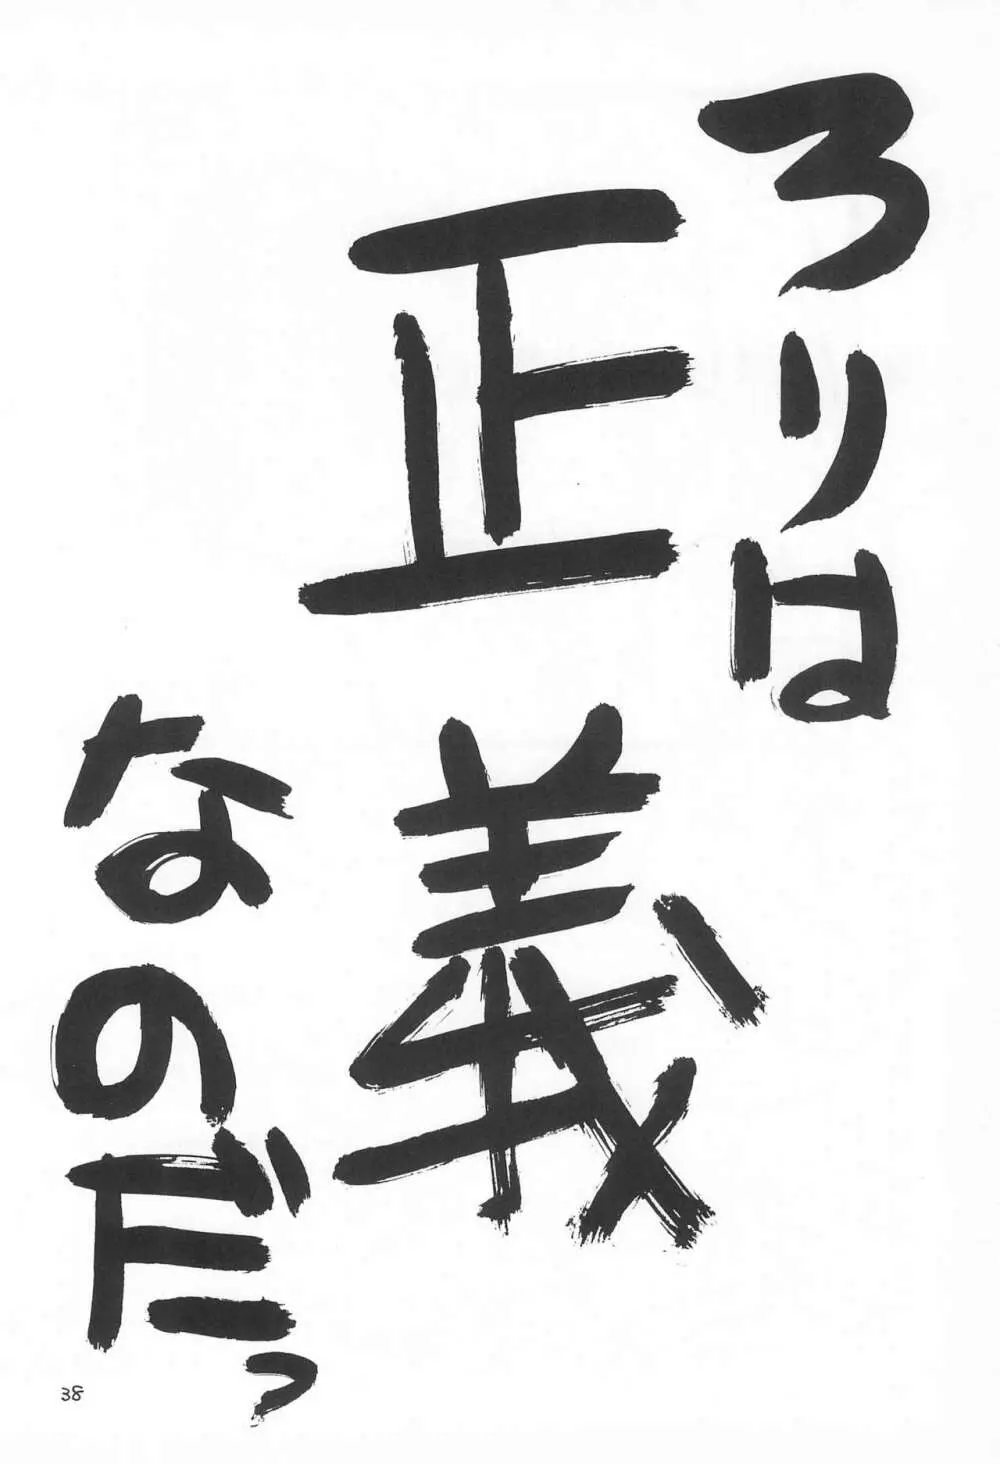 ろりは
正義
なのだっ
38